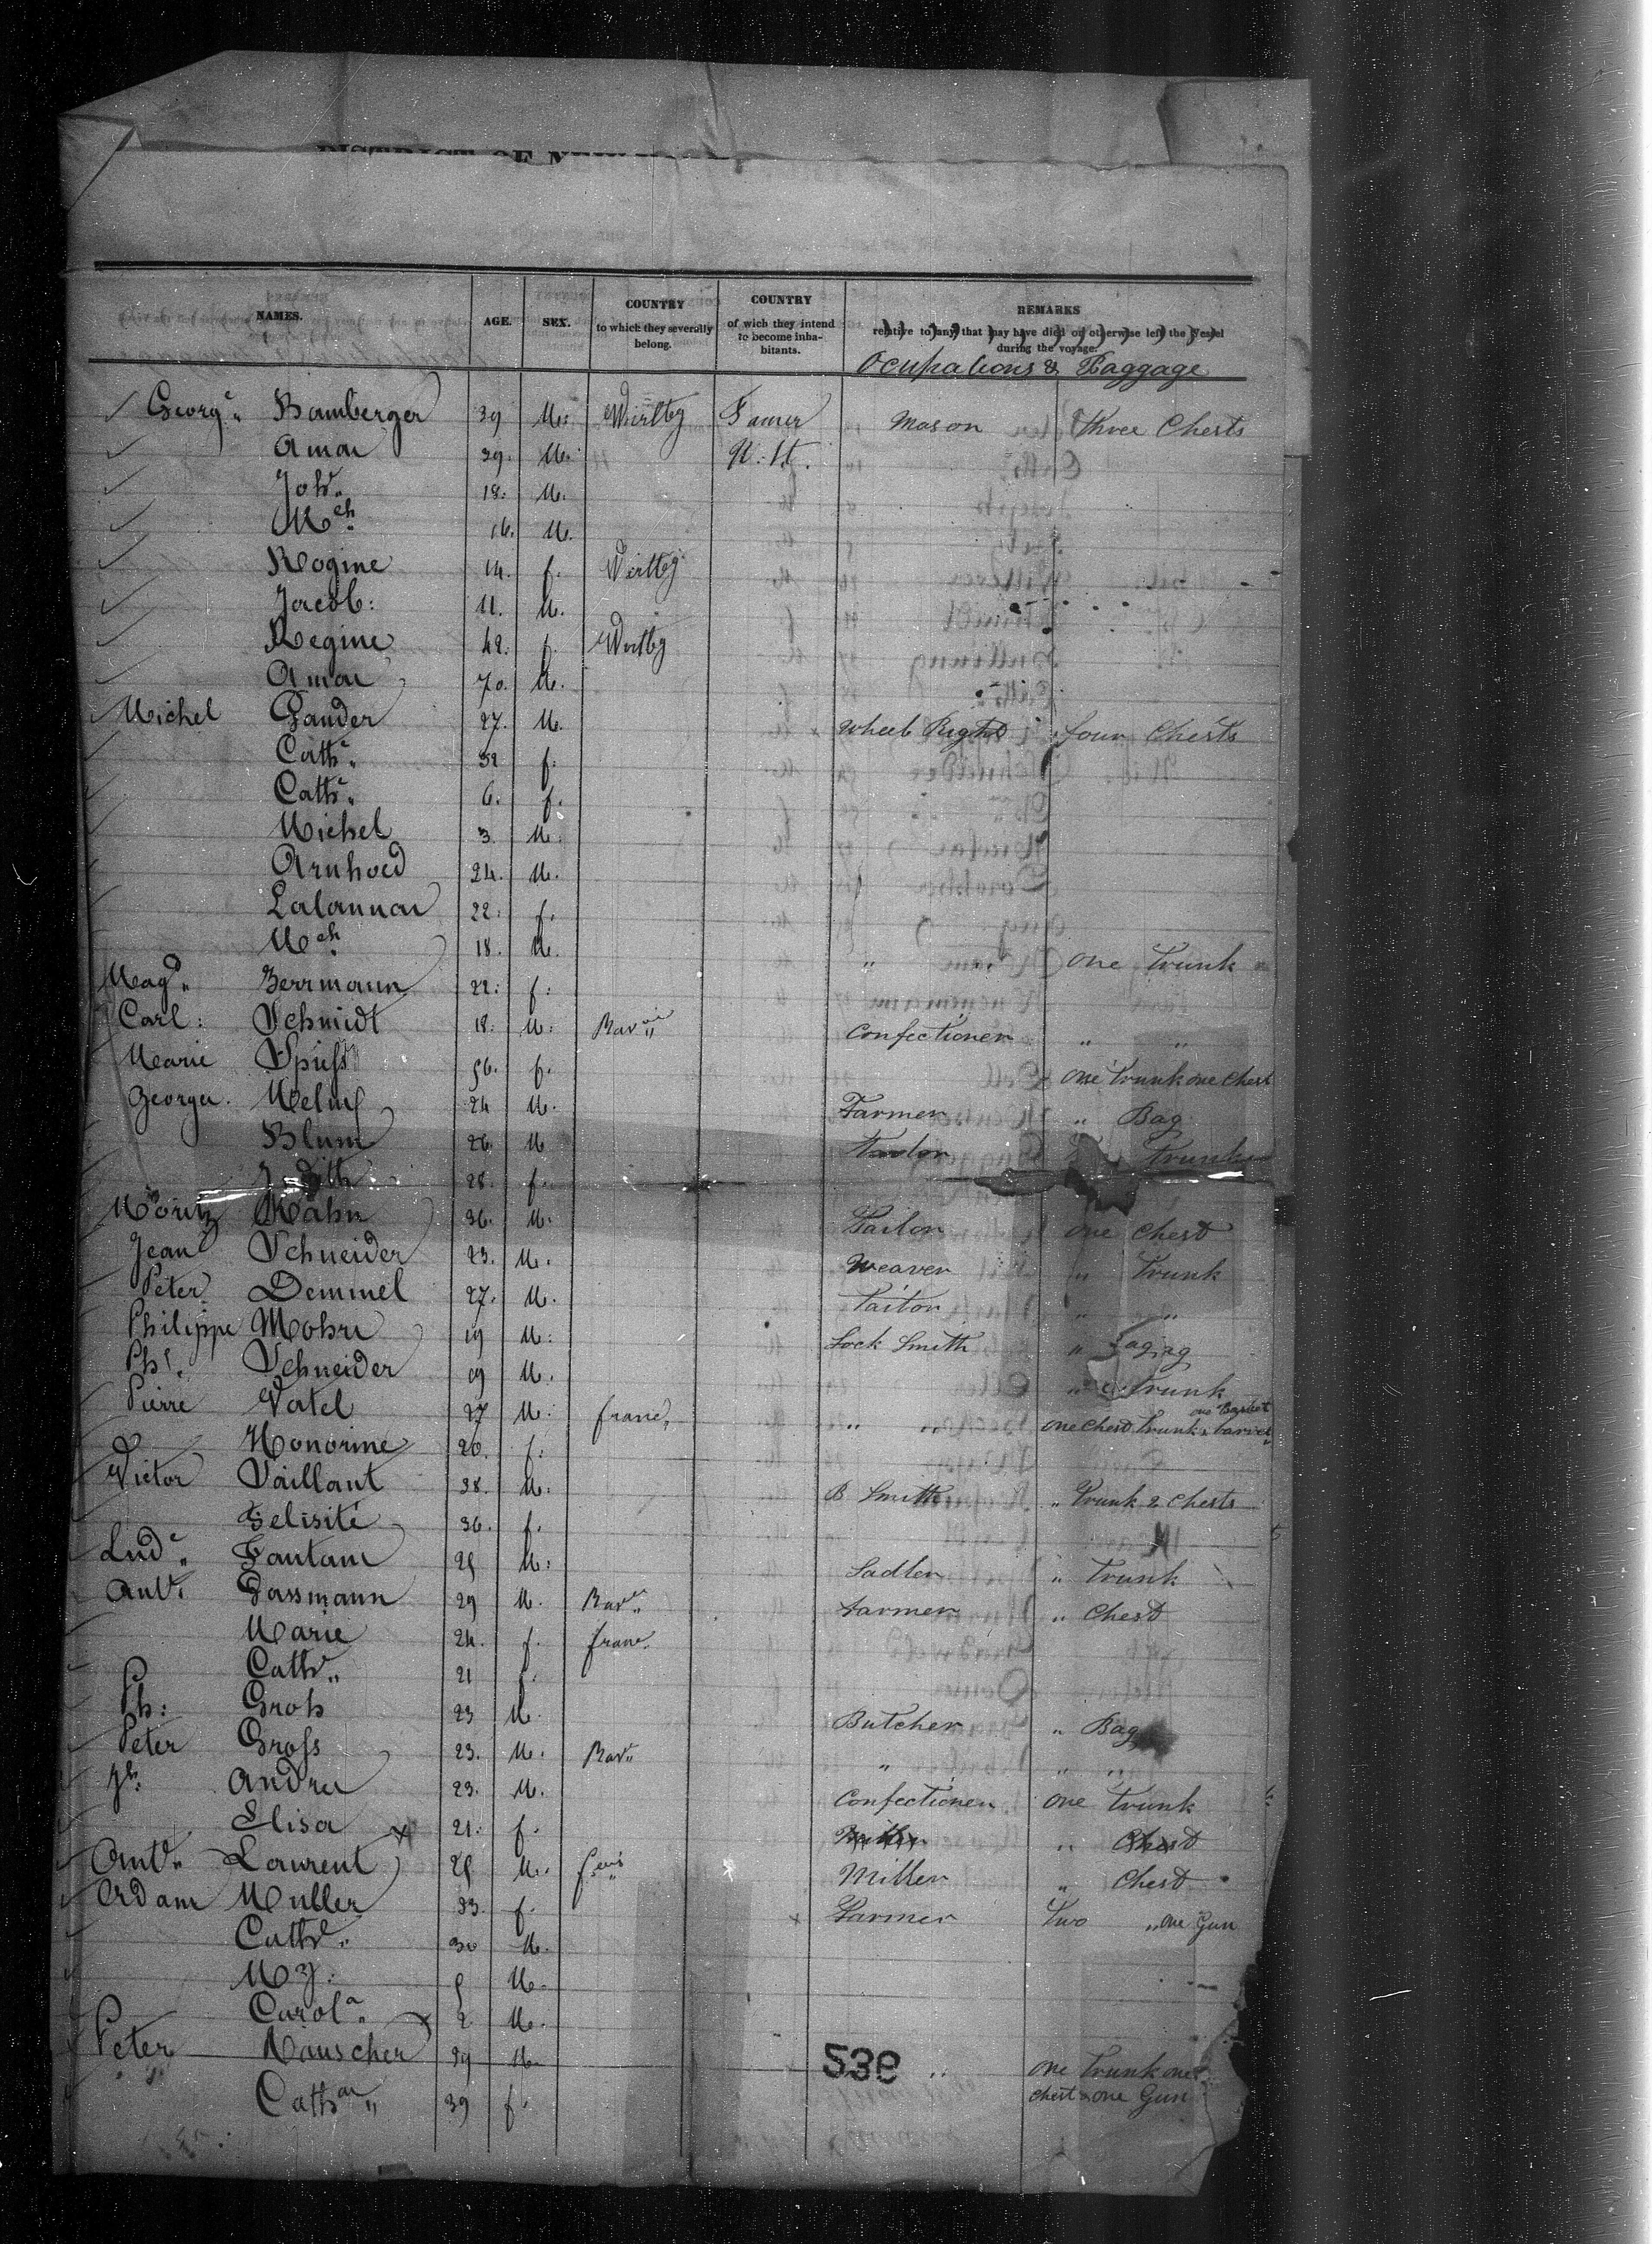 DISTRICT OF NEW
NAMES. AGE. SEX. COUNTRY to which they severally belong. COUNTRY of wich they intend to become inhabitants. REMARKS relative to any that may have died or otherwise left the Vessel during the voyage.
Ocupations & Baggage
Georg. Bamberger 39 M. Wirtbg Mason three Chests
39. M. N.
Joh. 18. M.
Mch. 16. M.
Rogine 14. f. Wirtbg
Jacob: 11. M.
Regine 42. f. Wirtbg
70. M.
Michel Gander 27. M. Wheel Right four Chests
Cath. 32 f.
Cath. 6. f.
Michel 3. M.
Arnhoed 24. M.
22. f.
Mch 18. M. " one Trunk
Magd. Zerrmann 22. f.
Carl: Schmidt 18. M. Bav Confectioner " "
Marie Spiess 56. f. one Trunk one Chest
George. 24 M. Farmer " Bag
Blum 26. M Trunk
28. f.
Moritz Kahn 36. M. Tailor one Chest
Jean Schneider 23. M. Weaver " Trunk
Peter Demmel 27. M. Tailor " "
Philippe Mohr 19 M. Lock Smith "
Ph. Schneider 19 M. " Trunk
Pierre Vatel 27 M. franc. " " one Chest Trunk & barrel one Basket
Honorine 20. f.
Victor Vaillant 38. M. B Smith " Trunk 2 Chests
Felisité 36. f.
Lud. Fantam 25 M. Sadler " Trunk
Ant. Gassmann 29 M. Bav. Farmer " Chest
Marie 24. f. franc.
Cath. 21 f.
Ph: Gross 23 M. Butcher " Bag
Peter Gross 23. M. Bav. " " "
Jh. Andre 23. M. Confectioner one Trunk
Elisa 21. f. " Chest
Ant. Laurent 25 M. Miller " Chest
Adam Muller 33. f. Farmer Two " one Gun
Cath. 30 M.
M 5 M.
Carol. 2 M.
Peter Rauscher 39 M. 539 " one Trunk one
Cath. 39 f. chest & one Gun